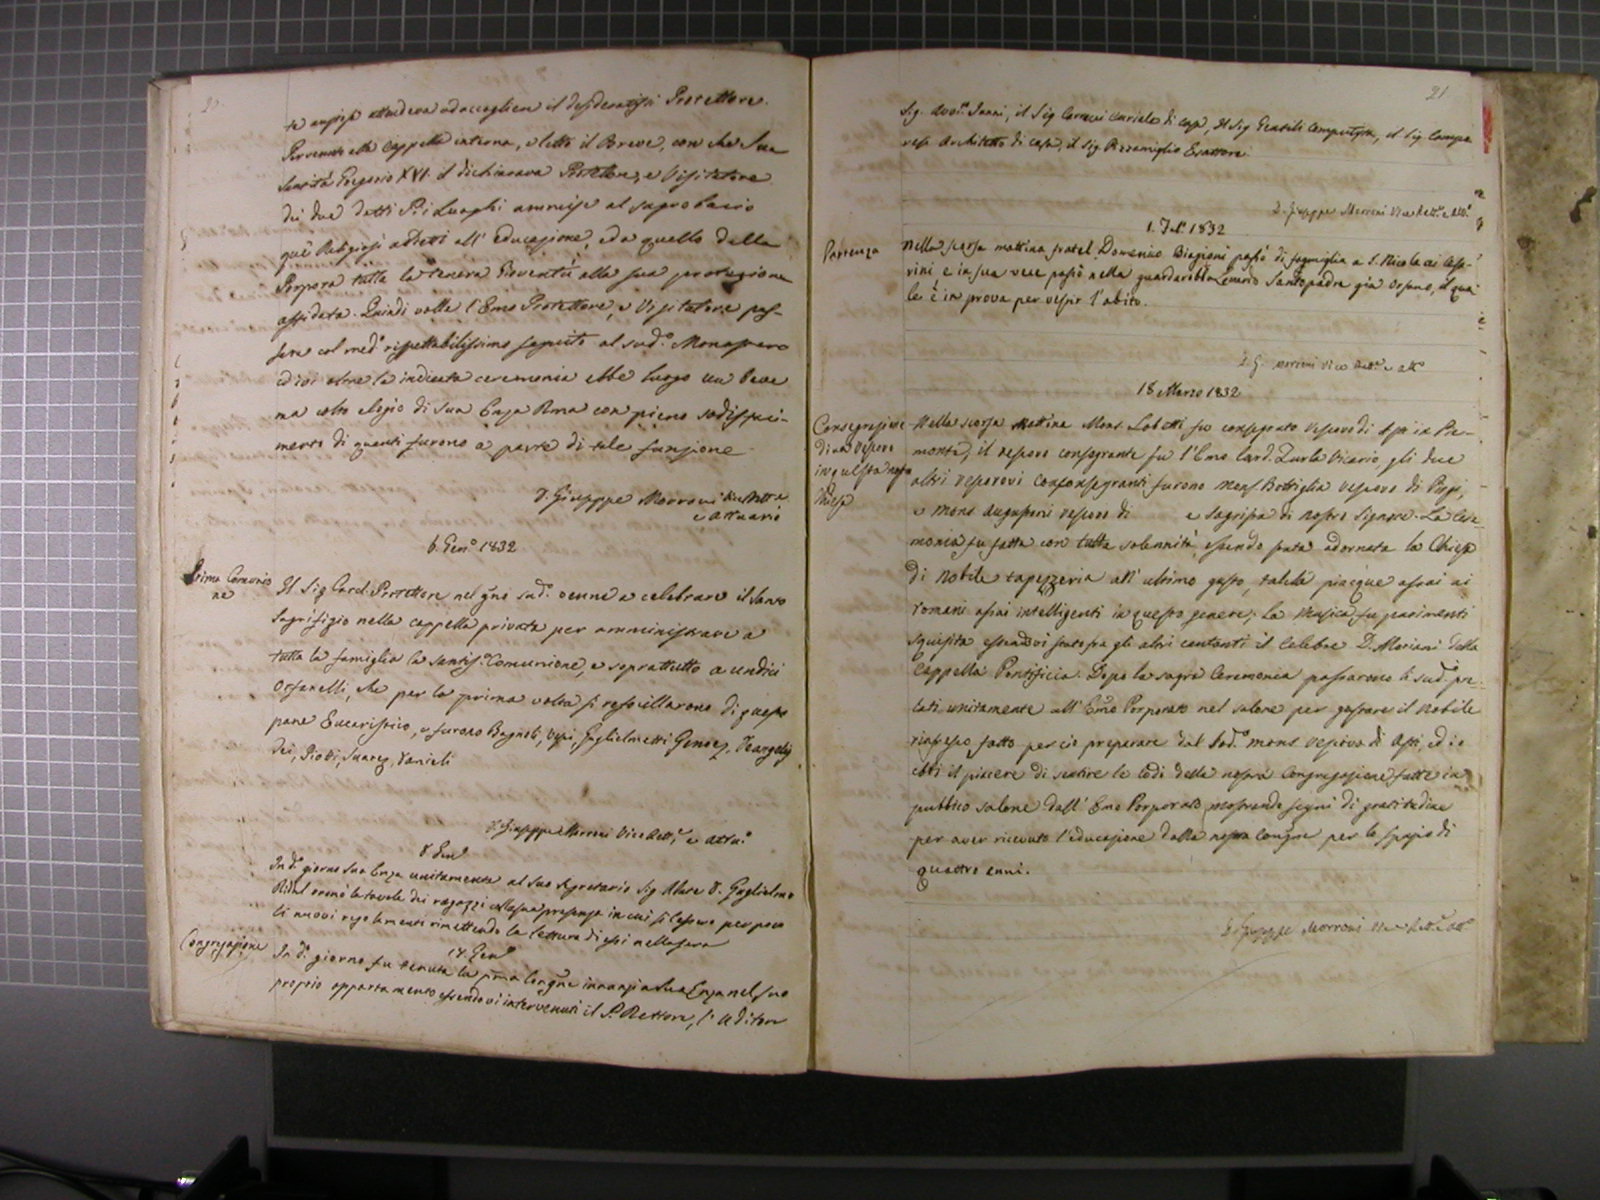 20
te ansiose attendeva ad accogliere il desideratissi Protettore.
Pervenuto alla Cappella interna, e letto il Breve, con che Sua
Santità Gregorio XVI. il dichiarava Protettore, e Visitatore
dei due detti Pii Luoghi ammise al sagro bacio
que' Religiosi addetti all' educazione, ed a quello della
Porpora tutta la tenera Gioventù alla sua protezione
affidata. Quindi volle l'Emo Protettore, e Visitatore pas-
sare col med.o rispettabilissimo seguito al sud.o Monastero
ed ivi oltre la indicata ceremonia ebbe luogo un breve
ma colto elogio di Sua Enza Rma con pieno sodisfaci-
mento di quanti furono a parte di tale funzione
D. Giuseppe Morroni Vice Rett.e
e Attuario
6. Gen.o 1832
Prima Comunio
ne
Il Sig Card. Protettore nel gno sud.o venne a celebrare il Santo
Sagrifizio nella cappella privata per amministrare a
tutta la famiglia la Santis.a Comunione, e soprattutto a undici
Orfanelli, che per la prima volta si refocillarono di questo
pane Eucaristico, e furono Bagnoli, Guglielmetti
dei, Suarez,
D. Giuseppe Morroni Vice Rett.e e Attu.o
8 Gen.o
In d.o giorno Sua Enza unitamente al suo Segretario Sig. Abate D. Guglielmo
onorò la tavola dei ragazzi colla sua presenza in cui si lessero per poco
li nuovi regolamenti rimettendo la lettura di essi nella sera
17. Gen.o
Congregazione
In d.o giorno fu tenuta la pma Congne innanzi a Sua Enza nel suo
proprio appartamento essendovi intervenuti il P. Rettore, l' Uditore
21
Sig. Avv.o Janni, il Sig Curiale di casa, Il Sig Gentili Computista, il Sig. Campo
rese Architetto di casa, il Sig. Pizzamiglio Esattore.
D. Giuseppe Morroni Vice Rett.e e Att.o
1. 1832
Partenza
Nella scorsa mattina fratel Domenico Biagioni passò di famiglia a S. Nicola ai Cesa-
rini e in sua vece passò nella guardarobba Santopadre già Orfano, il qua-
le è in prova per vestir l'abito.
D. G. Morroni Vice Rett.e e Att.o
18 Marzo 1832
Consegrazione
di un Vescovo
in questa nostra
Chiesa
Nella scorsa mattina Mons. Lobetti fu consegrato Vescovo di Asti in Pie-
monte, il vescovo consagrante fu l'Emo Card. Zurla Vicario, gli due
altri vescovi consegranti furono Mons. Bottiglia Vescovo di
e Mons Augustoni vescovo di e Sagrista di Nostro Signore. La Cere-
monia fu fatta con tutta solennità essendo stata adornata la Chiesa
di nobile tapezzeria all' ultimo gusto, talchè piacque assai ai
romani assai intelligenti in questo genere; la Musica fu parimenti
squisita essendovi stato fra gli altri cantanti il celebre D. Mariani della
Cappella Pontificia. Dopo la sagra Ceremonia passarono li sud.i pre-
lati unitamente all' Emo Porporato nel salone per gustare il nobile
rinfresco fatto per ciò preparare dal sod.o Mons. Vescovo di Asti, ed io
ebbi il piacere di sentire le lodi della nostra Congregazione fatte in
pubblico salone dall' Emo Porporato mostrando segni di gratitudine
per aver ricevuto l'educazione dalla nostra Congne per lo spazio di
quattro anni.
D. Giuseppe Morroni Vice Rett.e Att.o